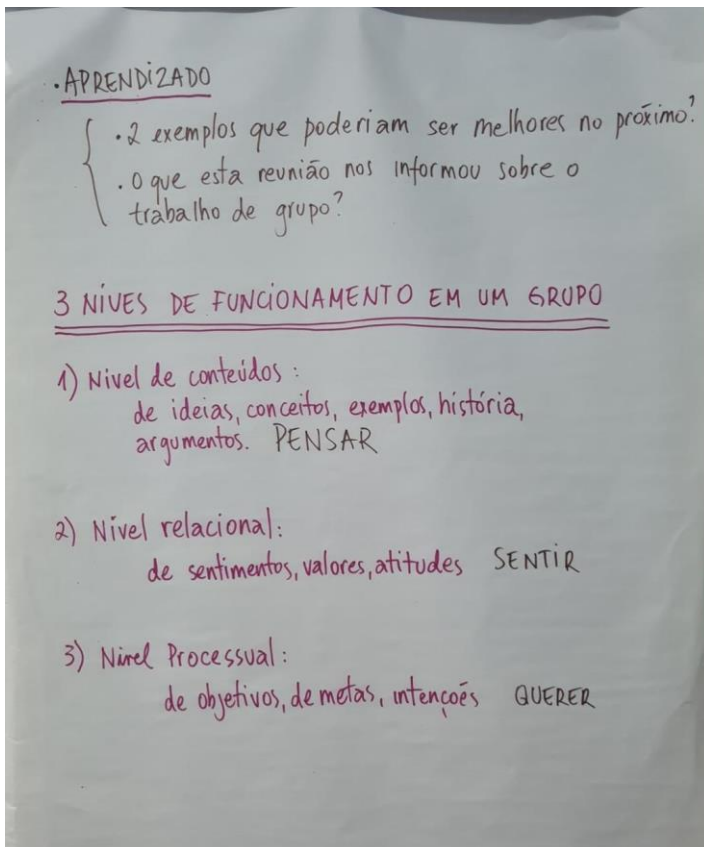 ·APRENDiZADO
·2 exemplos que poderiam ser melhores no próximo?
·O que esta reunião nos informou sobre o
trabalho de grupo?
3 NÍVES DE FUNCiONAMENTO EM UM GRUPO
1) Nivel de conteúdos:
de ideias, conceitos, exemplos, história,
argumentos. PENSAR
2) Nível relacional:
de sentimentos, valores, atitudes SENTiR
3) Nivel Processual:
de objetivos, de metas, intençoēs QUERER